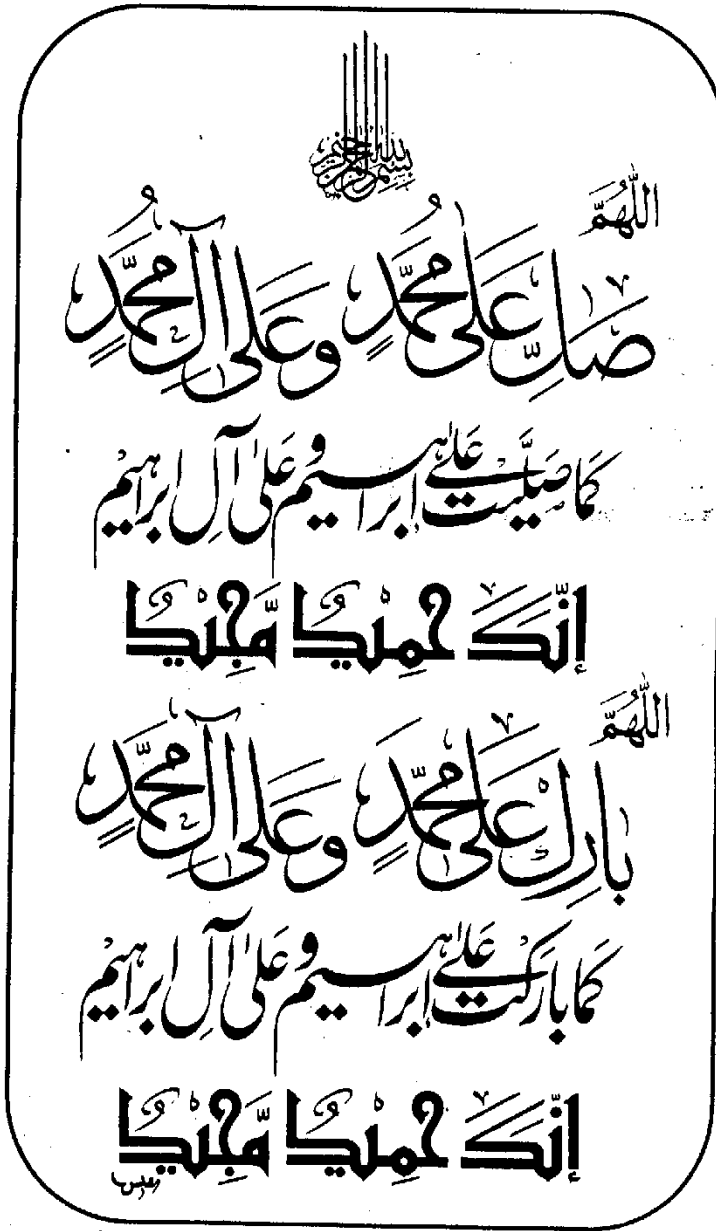 بسم الله الرحمن الرحيم
اللّٰهُمَّ
صَلِّ عَلٰى مُحَمَّدٍ وَعَلٰى آلِ مُحَمَّدٍ
كَمَا صَلَّيْتَ عَلٰى اِبْرَاهِيْمَ وَعَلٰى آلِ اِبْرَاهِيْمَ
اِنَّكَ حَمِيْدٌ مَّجِيْدٌ
اللّٰهُمَّ
بَارِكْ عَلٰى مُحَمَّدٍ وَعَلٰى آلِ مُحَمَّدٍ
كَمَا بَارَكْتَ عَلٰى اِبْرَاهِيْمَ وَعَلٰى آلِ اِبْرَاهِيْمَ
اِنَّكَ حَمِيْدٌ مَّجِيْدٌ